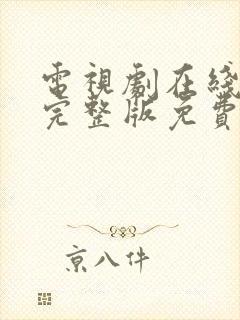 電視劇在綫
完整版免費
京八件